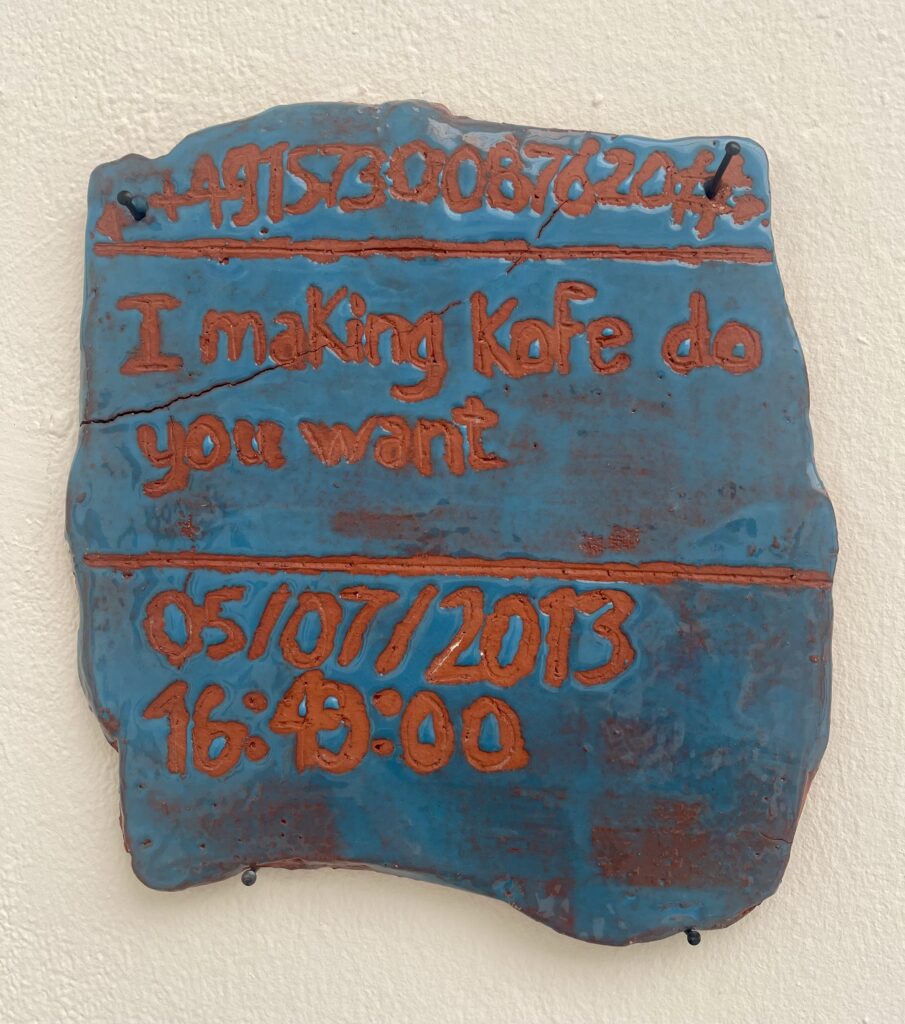 ++4915730087620++
I making Kofe do
you want
05/07/2013
16:49:00